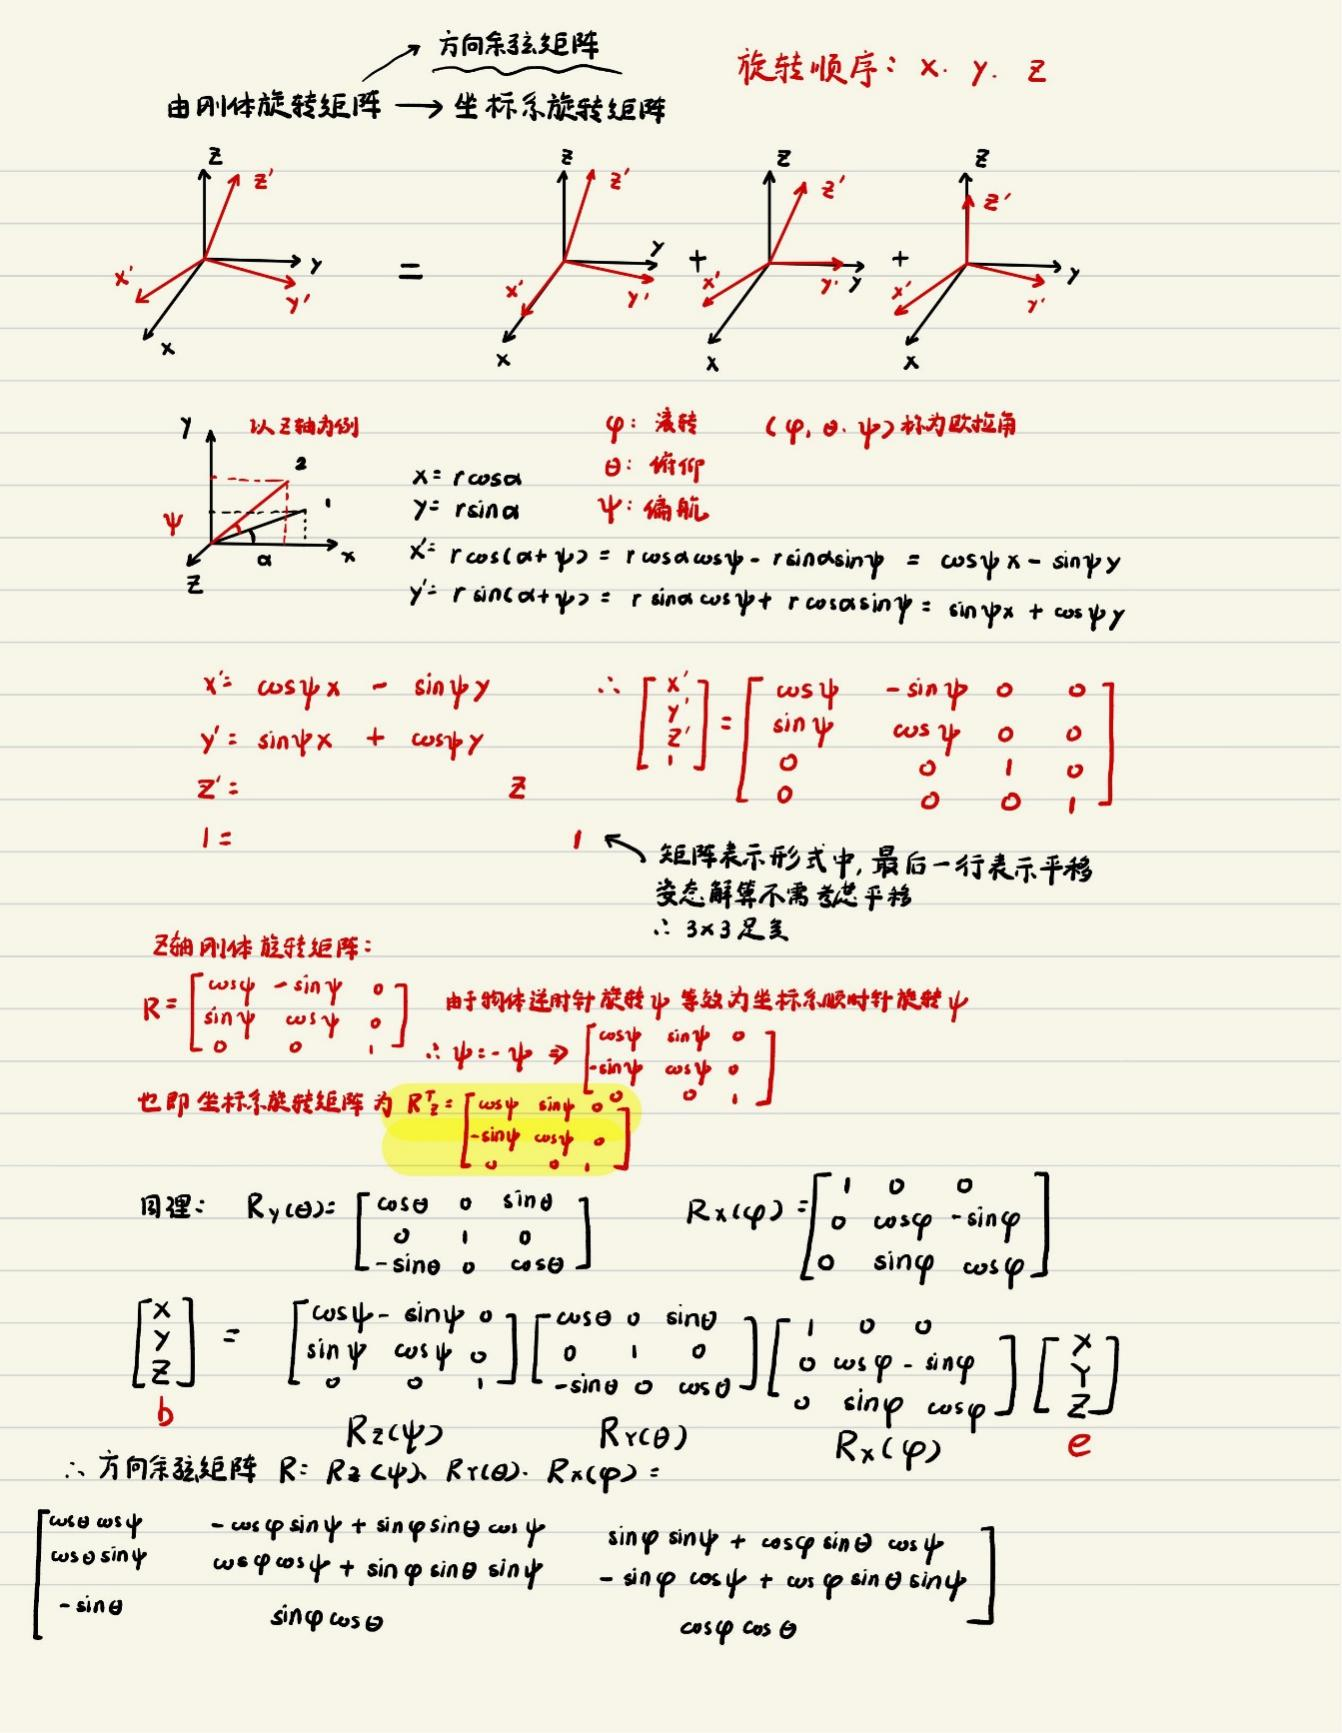 方向余弦矩阵
旋转顺序: x. y. z
由刚体旋转矩阵 → 坐标系旋转矩阵
z z' y y' x x' = z z' y y' x x' + z z' y y' x x' + z z' y y' x x'
以Z轴为例
φ: 滚转 (φ, θ. ψ) 称为欧拉角
θ: 俯仰
ψ: 偏航
y 2 1 ψ α x z
x = rcosα
y = rsinα
x' = rcos(α+ψ) = rcosαcosψ - rsinαsinψ = cosψx - sinψy
y' = rsin(α+ψ) = rsinαcosψ + rcosαsinψ = sinψx + cosψy
x' = cosψx - sinψy
y' = sinψx + cosψy
z' = z
1 = 1
∴ [x' y' z' 1] = [cosψ -sinψ 0 0
sinψ cosψ 0 0
0 0 1 0
0 0 0 1]
矩阵表示形式中, 最后一行表示平移
姿态解算不需考虑平移
∴ 3×3足矣
Z轴刚体旋转矩阵:
R = [cosψ -sinψ 0
sinψ cosψ 0
0 0 1]
由于物体逆时针旋转ψ等效为坐标系顺时针旋转ψ
∴ ψ = -ψ ⇒ [cosψ sinψ 0
-sinψ cosψ 0
0 0 1]
也即坐标系旋转矩阵为 Rᵀz = [cosψ sinψ 0
-sinψ cosψ 0
0 0 1]
同理: Ry(θ) = [cosθ 0 sinθ
0 1 0
-sinθ 0 cosθ]
Rx(φ) = [1 0 0
0 cosφ -sinφ
0 sinφ cosφ]
[X Y Z] = [cosψ -sinψ 0
sinψ cosψ 0
0 0 1] [cosθ 0 sinθ
0 1 0
-sinθ 0 cosθ] [1 0 0
0 cosφ -sinφ
0 sinφ cosφ] [X Y Z]
b Rz(ψ) Ry(θ) Rx(φ) e
∴ 方向余弦矩阵 R = Rz(ψ). Ry(θ). Rx(φ) =
[cosθcosψ -cosφsinψ + sinφsinθcosψ sinφsinψ + cosφsinθcosψ
cosθsinψ cosφcosψ + sinφsinθsinψ -sinφcosψ + cosφsinθsinψ
-sinθ sinφcosθ cosφcosθ]